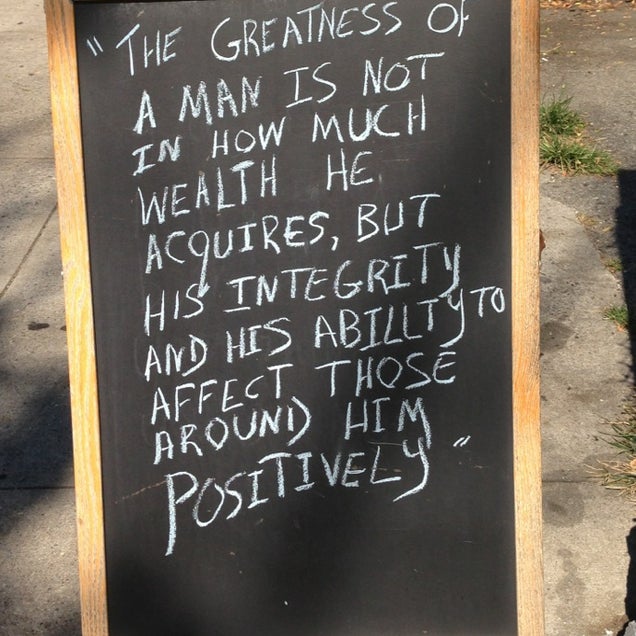 "THE GREATNESS OF
A MAN IS NOT
IN HOW MUCH
WEALTH HE
ACQUIRES, BUT
HIS INTEGRITY
AND HIS ABILITY TO
AFFECT THOSE
AROUND HIM
POSITIVELY"